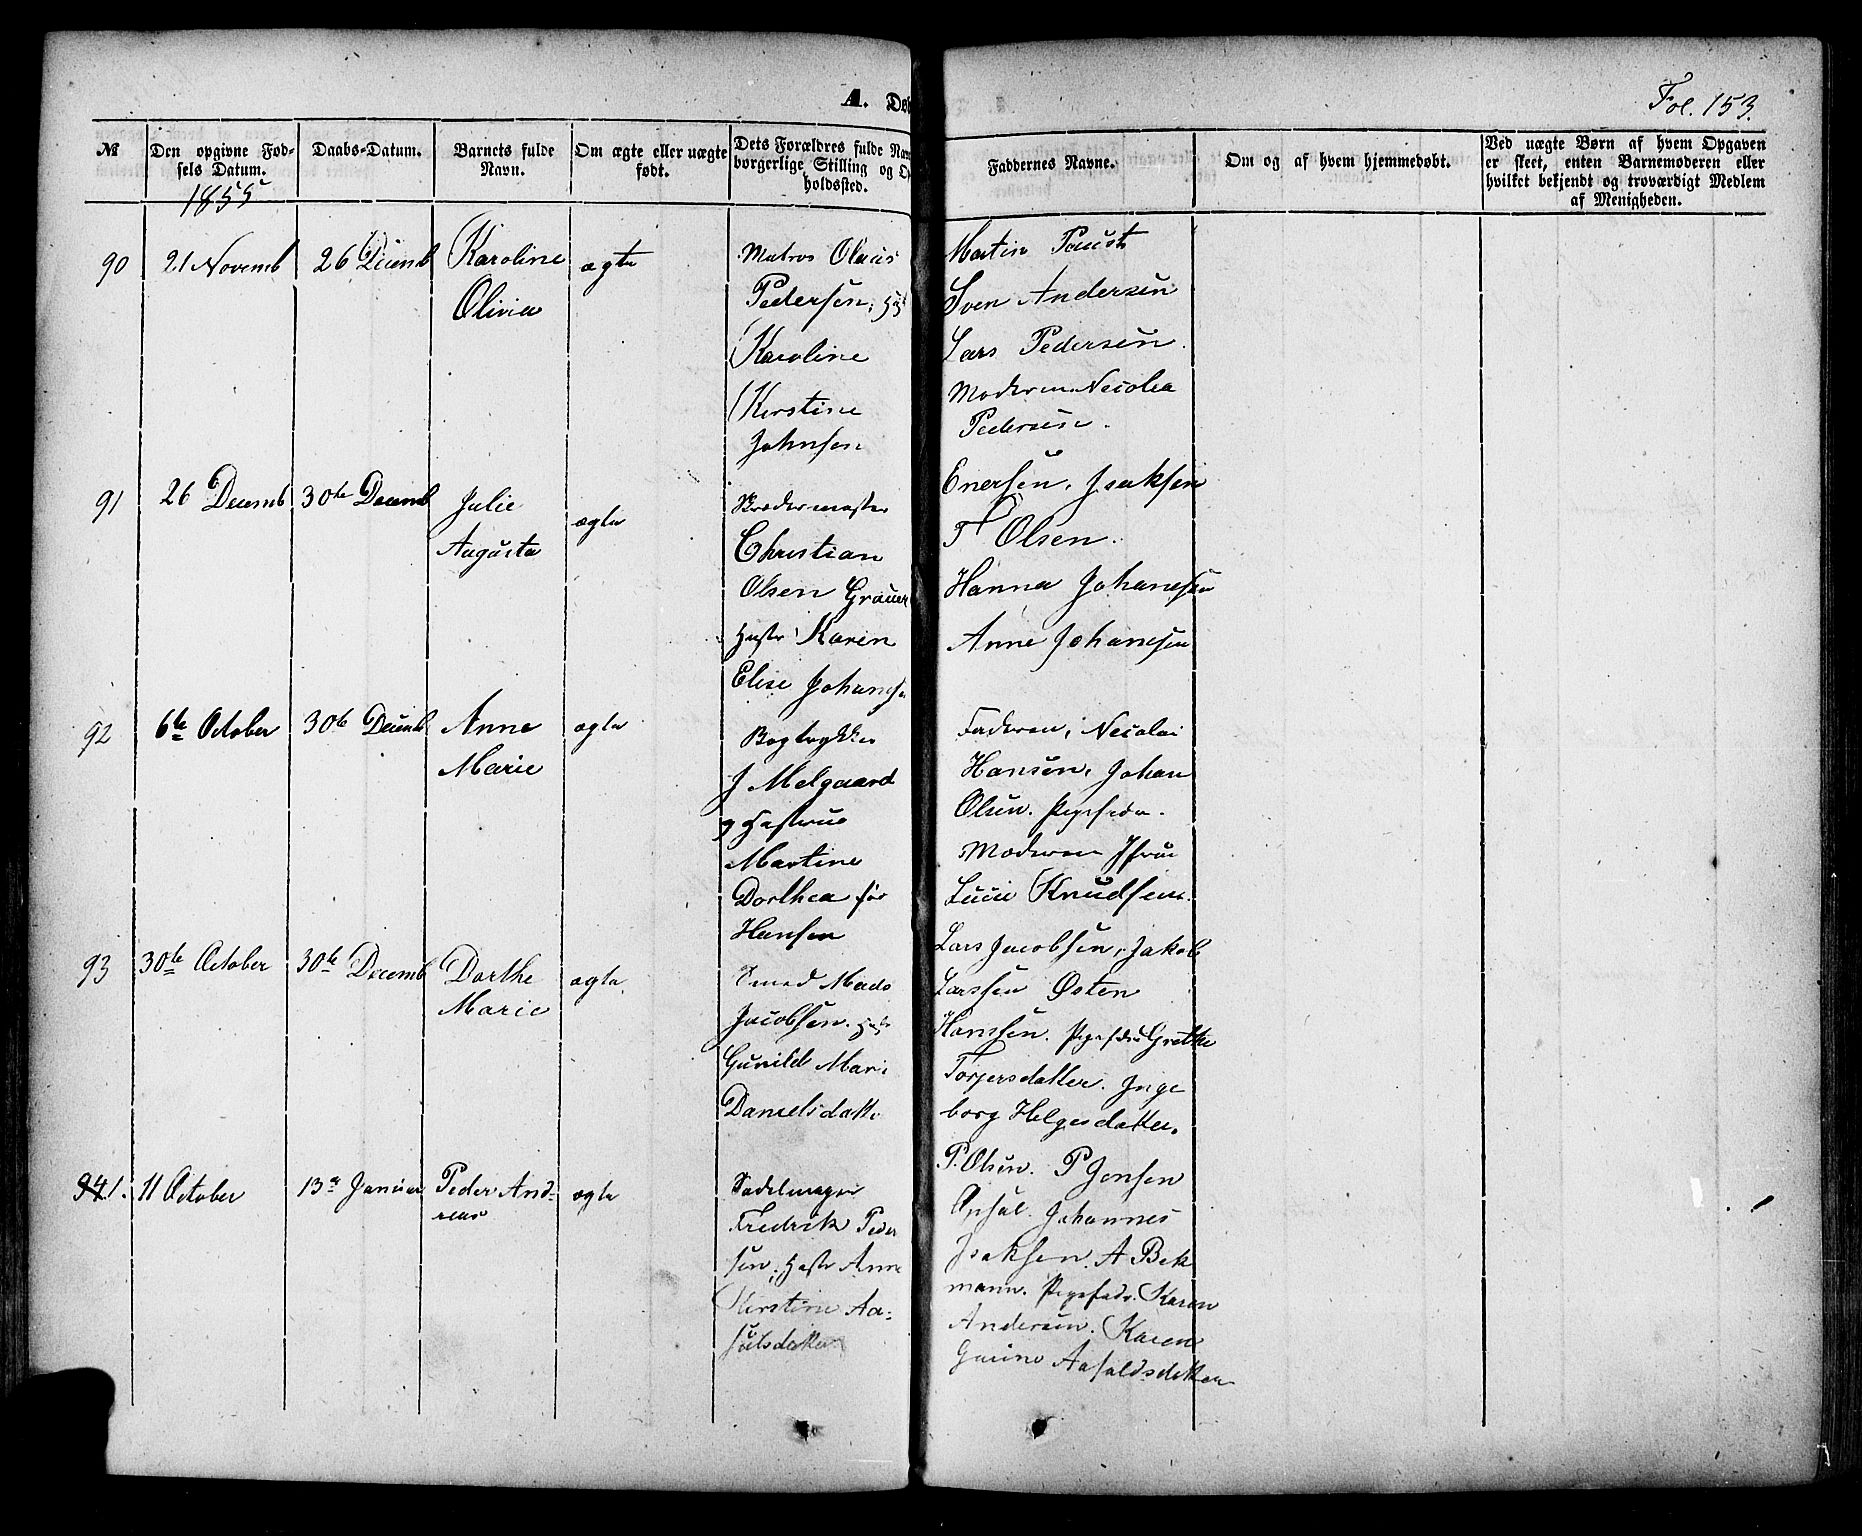 A. Døb
Fol. 153.
№
Den opgivne Fød-
sels Datum.
1855
Daabs-Datum.
Barnets fulde
Navn.
Om ægte eller uægte
født.
Dets Forældres fulde Nav
borgerlige Stilling og O
holdsted.
Faddernes Navne.
Om og af hvem hjemmedøbt.
Ved uægte Børn af hvem Opgaven
er skeet, enten Barnemoderen eller
hvilket bekjendt og troværdigt Medlem
af Menigheden.
90
21 Novemb
26 Decemb
Karoline
Olivia
ægte
Matros Olaus
Pedersen,
Karoline
Kirstine
Johnsen
Martin Faust
Sven Andersen
Lars Pedersen.
Moderen Necolea
Pedersen.
91
26 Decemb
30te Decemb
Julie
Augusta
ægte
Christian
Olsen Grauer
Hustr Karin
Elise Johanse
Enersen, Isaksen
T Olsen.
Hanna Johansen
Anne Johansen
92
6te October
30te Decemb
Anne
Marie
ægte
Bogtrykker
J Melgaard
og Hustrue
Martine
Dorthea før
Hansen
Faderen, Necolai
Hansen, Johan
Olsen. Pigefadr.
Moderen Jfrue
Lucie Knudsen.
93
30te October
30te Decemb
Dorthe
Marie
ægte.
Smed Mads
Jacobsen.
Gunild Mari
Danielsdatte
Lars Jacobsen, Jakob
Larssen Østen
Hanssen. Pigefadr Grethe
Torjersdatter. Inge
borg Helgesdatter.
94 1.
11 October
13de Januar
Peder And-
reas
ægte
Sadelmager
Fredrik Peder
sen, Hustr Anne
Kirstine Aa-
sulsdatter
P. Olsen. P Jonsen
Opsal. Johannes
Isaksen. A Bek
mann. Pigefadr. Karen
Andersen. Karen
Gurine Aasaldsdatter